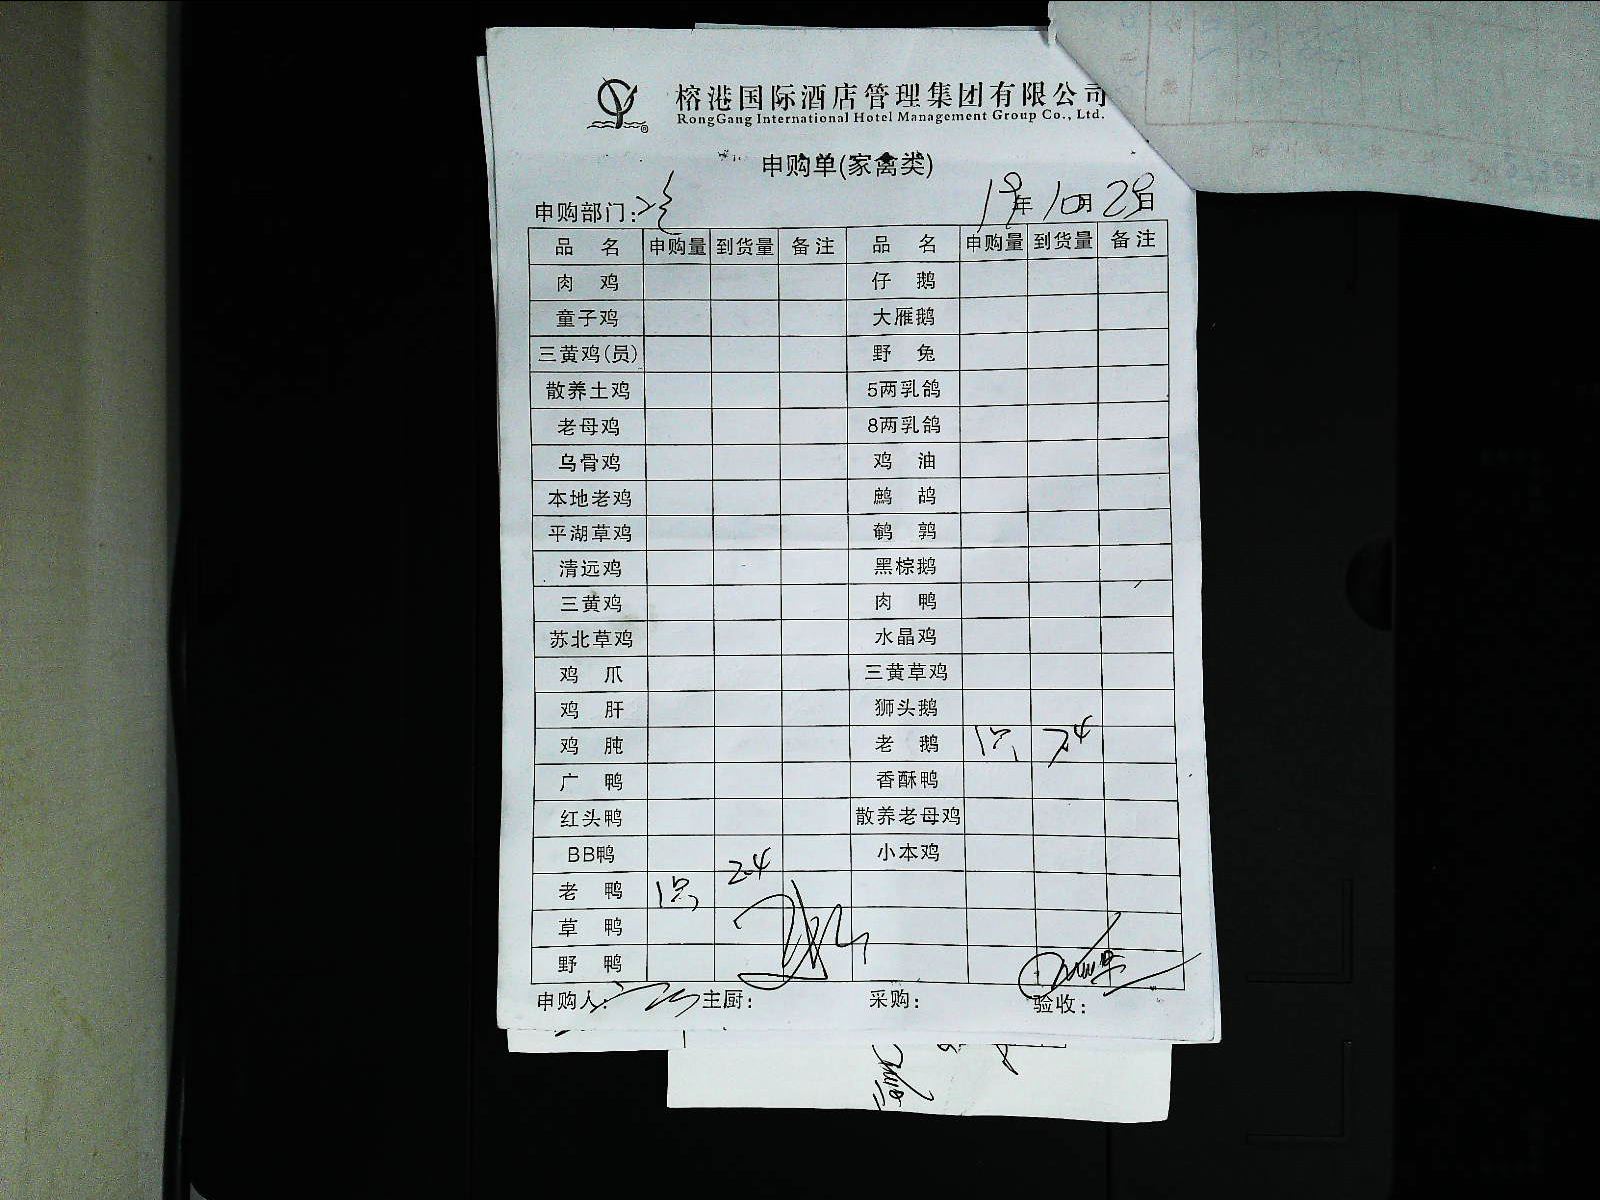 榕港国际酒店管理集团有限公司
RongGang International Hotel Management Group Co., Ltd.
申购单(家禽类)
申购部门: 19年10月29日
品名 申购量 到货量 备注 品名 申购量 到货量 备注
肉鸡 仔鹅
童子鸡 大雁鹅
三黄鸡(员) 野兔
散养土鸡 5两乳鸽
老母鸡 8两乳鸽
乌骨鸡 鸡油
本地老鸡 鹧鸪
平湖草鸡 鹌鹑
清远鸡 黑棕鹅
三黄鸡 肉鸭
苏北草鸡 水晶鸡
鸡爪 三黄草鸡
鸡肝 狮头鹅
鸡肫 老鹅 1只 7.4
广鸭 香酥鸭
红头鸭 散养老母鸡
BB鸭 小本鸡
老鸭 1只 2.4
草鸭
野鸭
申购人: 主厨: 采购: 验收: